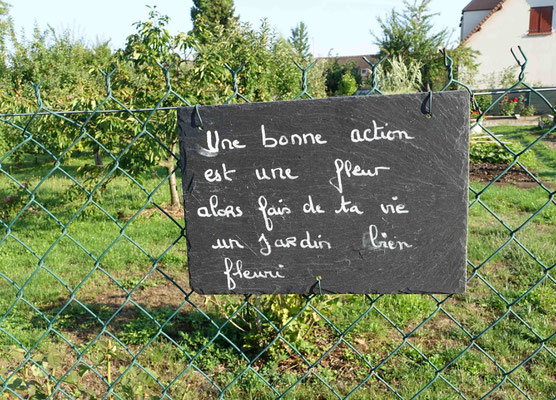 Une bonne action
est une fleur
alors fais de ta vie
un jardin bien
fleuri